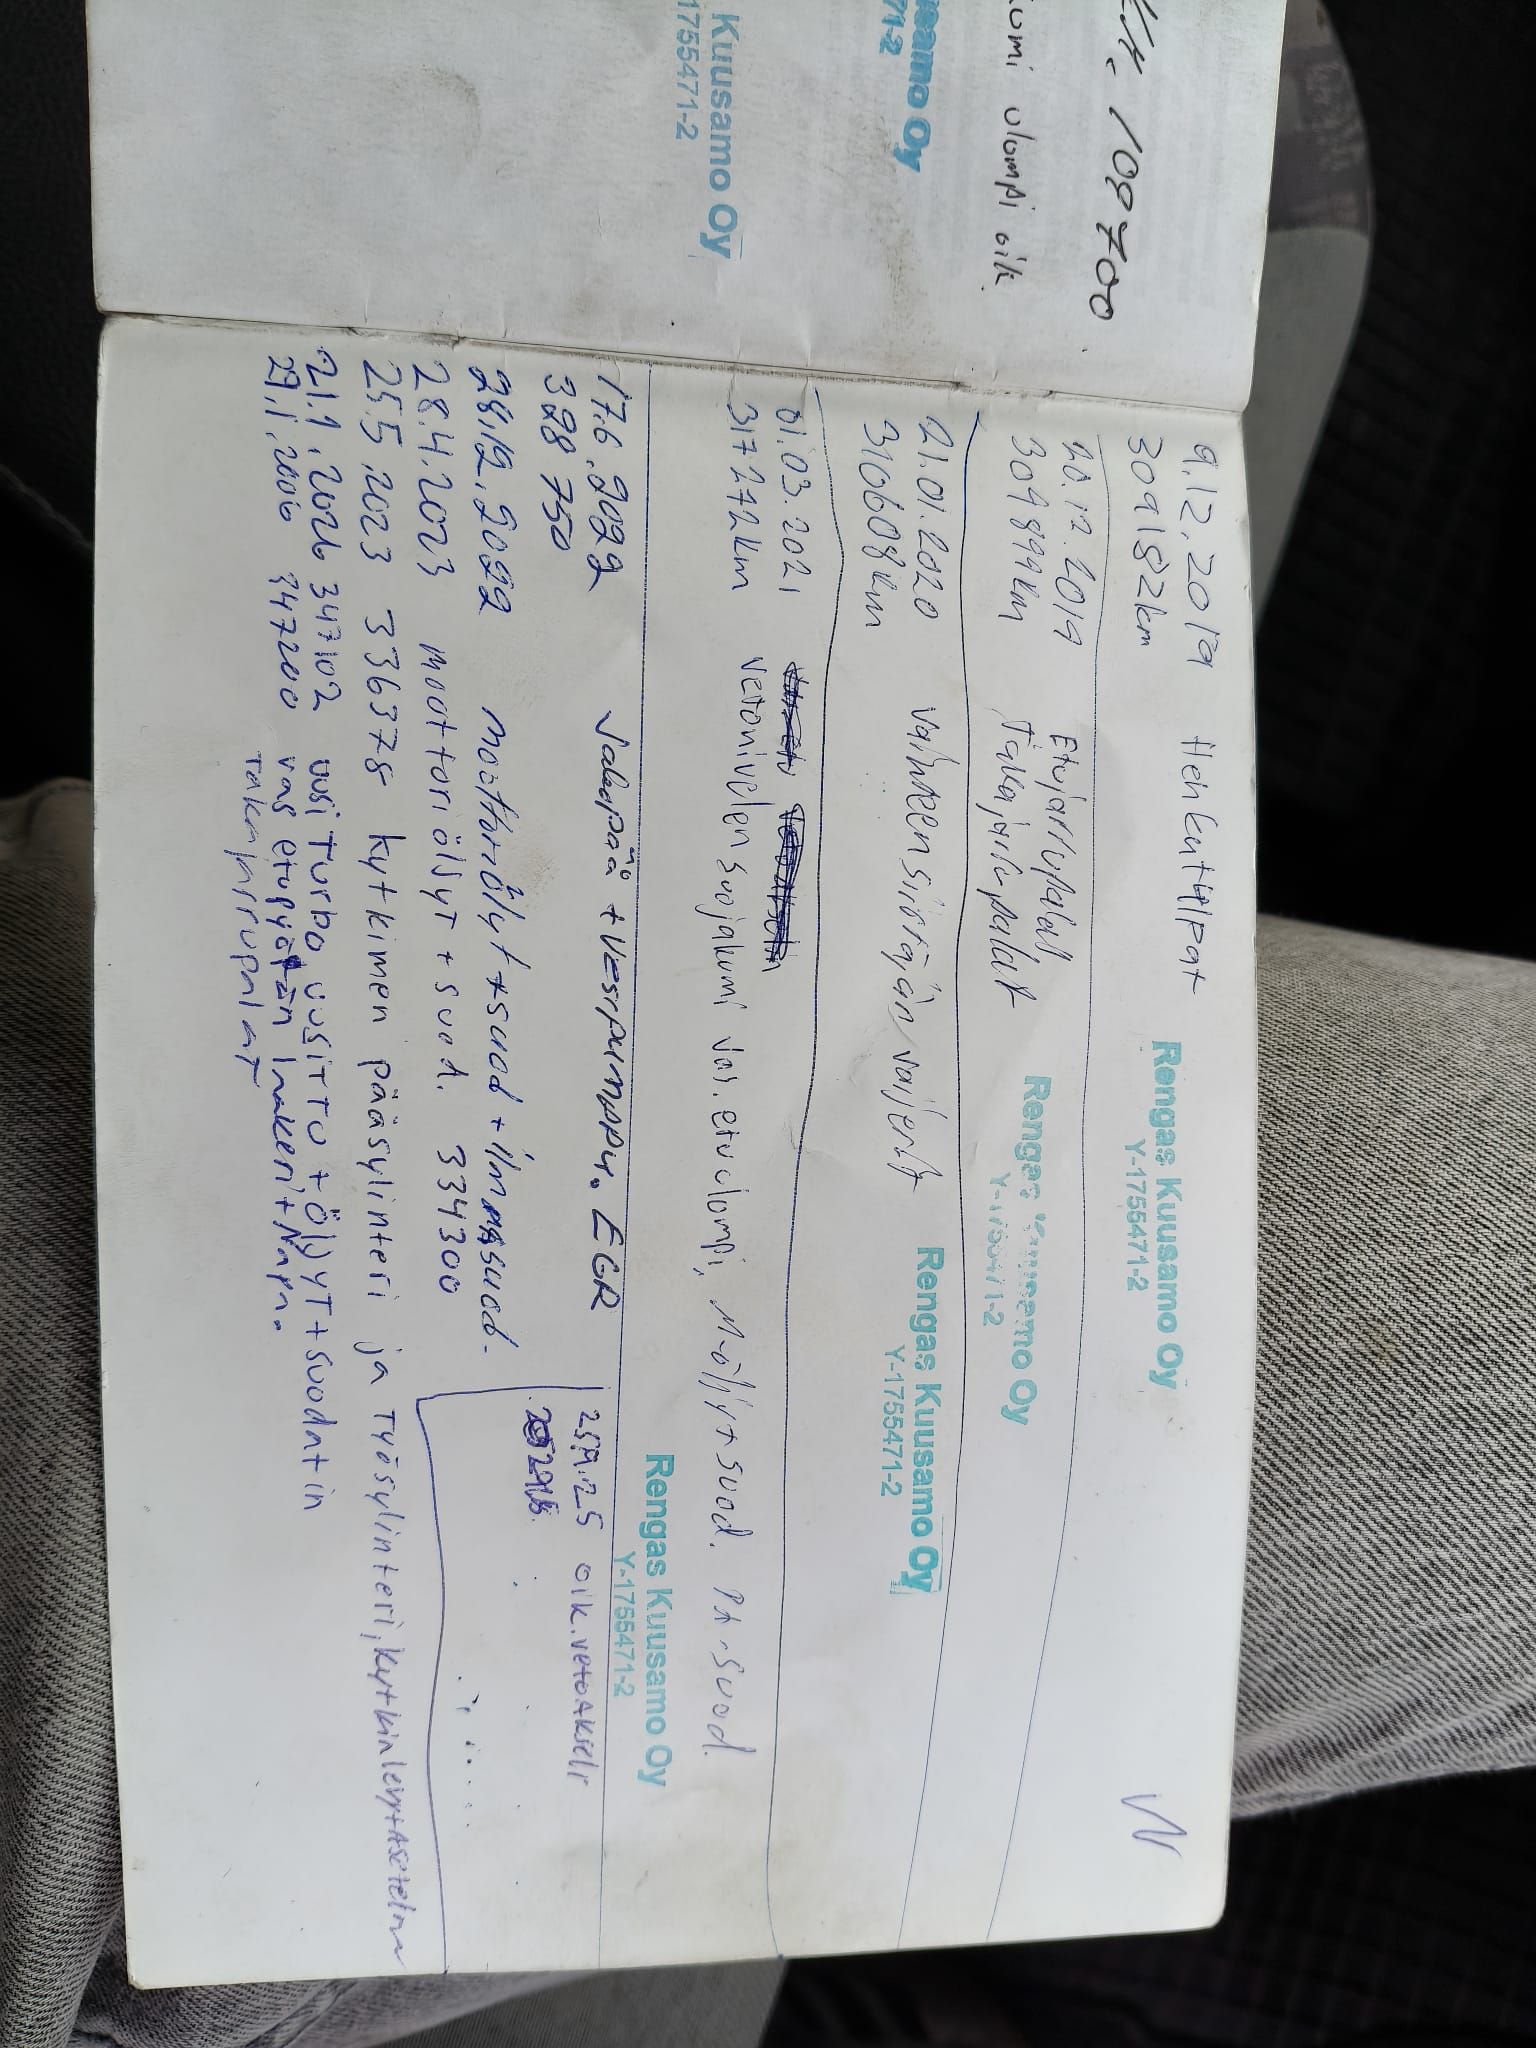 VH. 109700
kumi ulompi oik.
usamo Oy
71-2
Kuusamo Oy
1755471-2
9.12.2019 Henkutilpat
309182km
Rengas Kuusamo Oy
Y-1755471-2
20.12.2019 Etujarrupalat
309899km Takajarrupalat
Rengas Kuusamo Oy
Y-1755471-2
21.01.2020 vaihteensiirtäjän vaijerit
310608km
Rengas Kuusamo Oy
Y-1755471-2
01.03.2021
317272km vetonivelen suojakumi vas.etu ulompi, M-öljyt+suod. PA-suod.
Rengas Kuusamo Oy
Y-1755471-2
17.6.2022 Jakopää + Vesipumppu. EGR
328 750
25.9.25 oik.vetoakseli
28.12.2022 moottoriöljyt+suod+ilmassuod.
28.4.2023 moottoriöljyt + suod. 334300
25.5.2023 336378 kytkimen pääsylinteri ja Työsylinteri, kytkinlevy+Asetelma
21.1.2026 347102 uusi Turbo uusittu + ÖljyT+suodatin
29.1.2006 347200 vas etupyörän laakeri+Napa.
Takajarrupalat